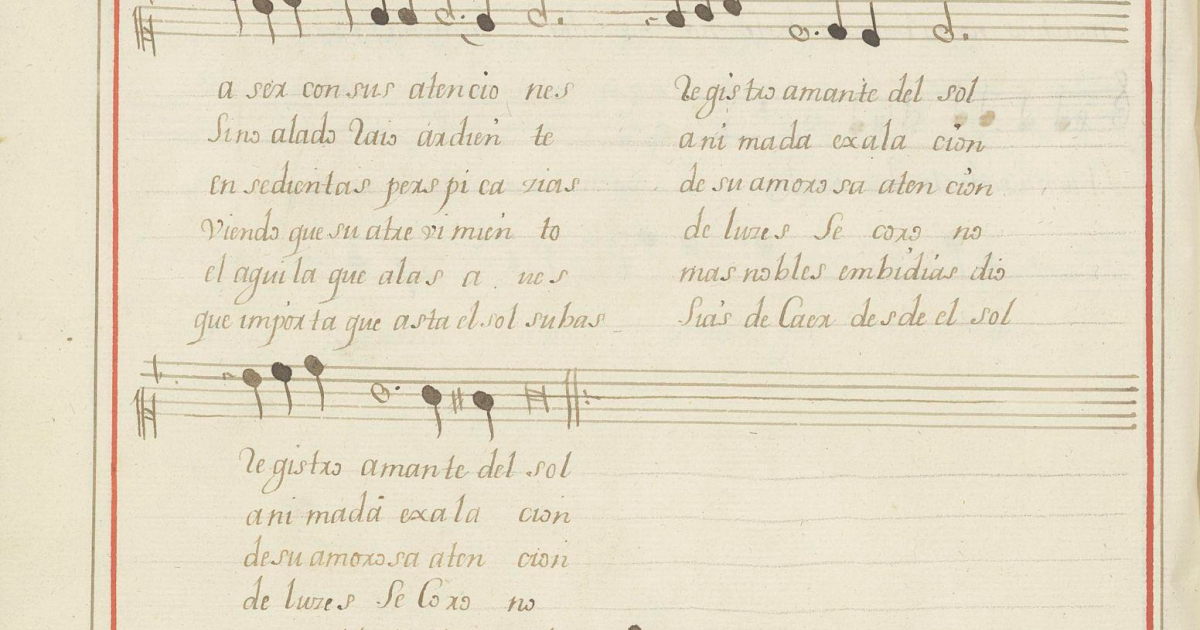 a ser con sus atencio nes
Registro amante del sol
Sino alado Raio ardien te
ani mada exala cion
en sedientas perspi ca zias
de su amorosa aten cion
viendo que su atre vi mien to
de luzes Se coro no
el aguila que alas a ues
mas nobles embidias dio
que importa que asta el sol subas
Si as de Caer desde el sol
Re gistro amante del sol
ani mada exala cion
de su amorosa aten cion
de luzes Se Coro no